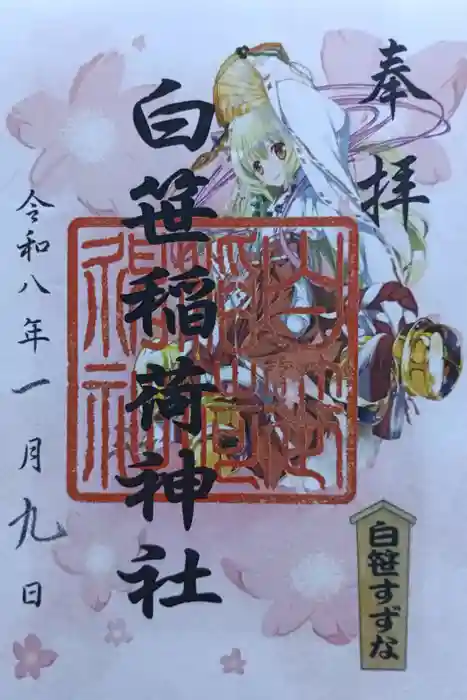 奉拝
白笹稲荷神社
令和八年一月九日
白笹すずな